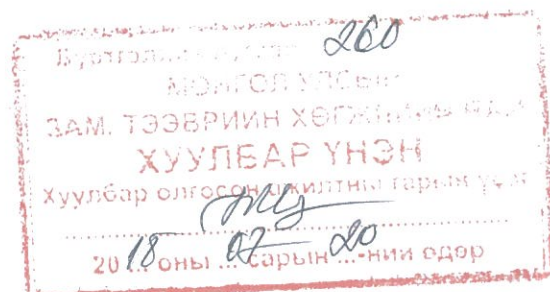 260
МОНГОЛ УЛСЫН
ЗАМ, ТЭЭВРИЙН ХӨГЖЛИЙН ЯАМ
ХУУЛБАР ҮНЭН
Хуулбар олгосон ажилтны гарын үсэг
2018 оны 07 сарын 20-ний өдөр